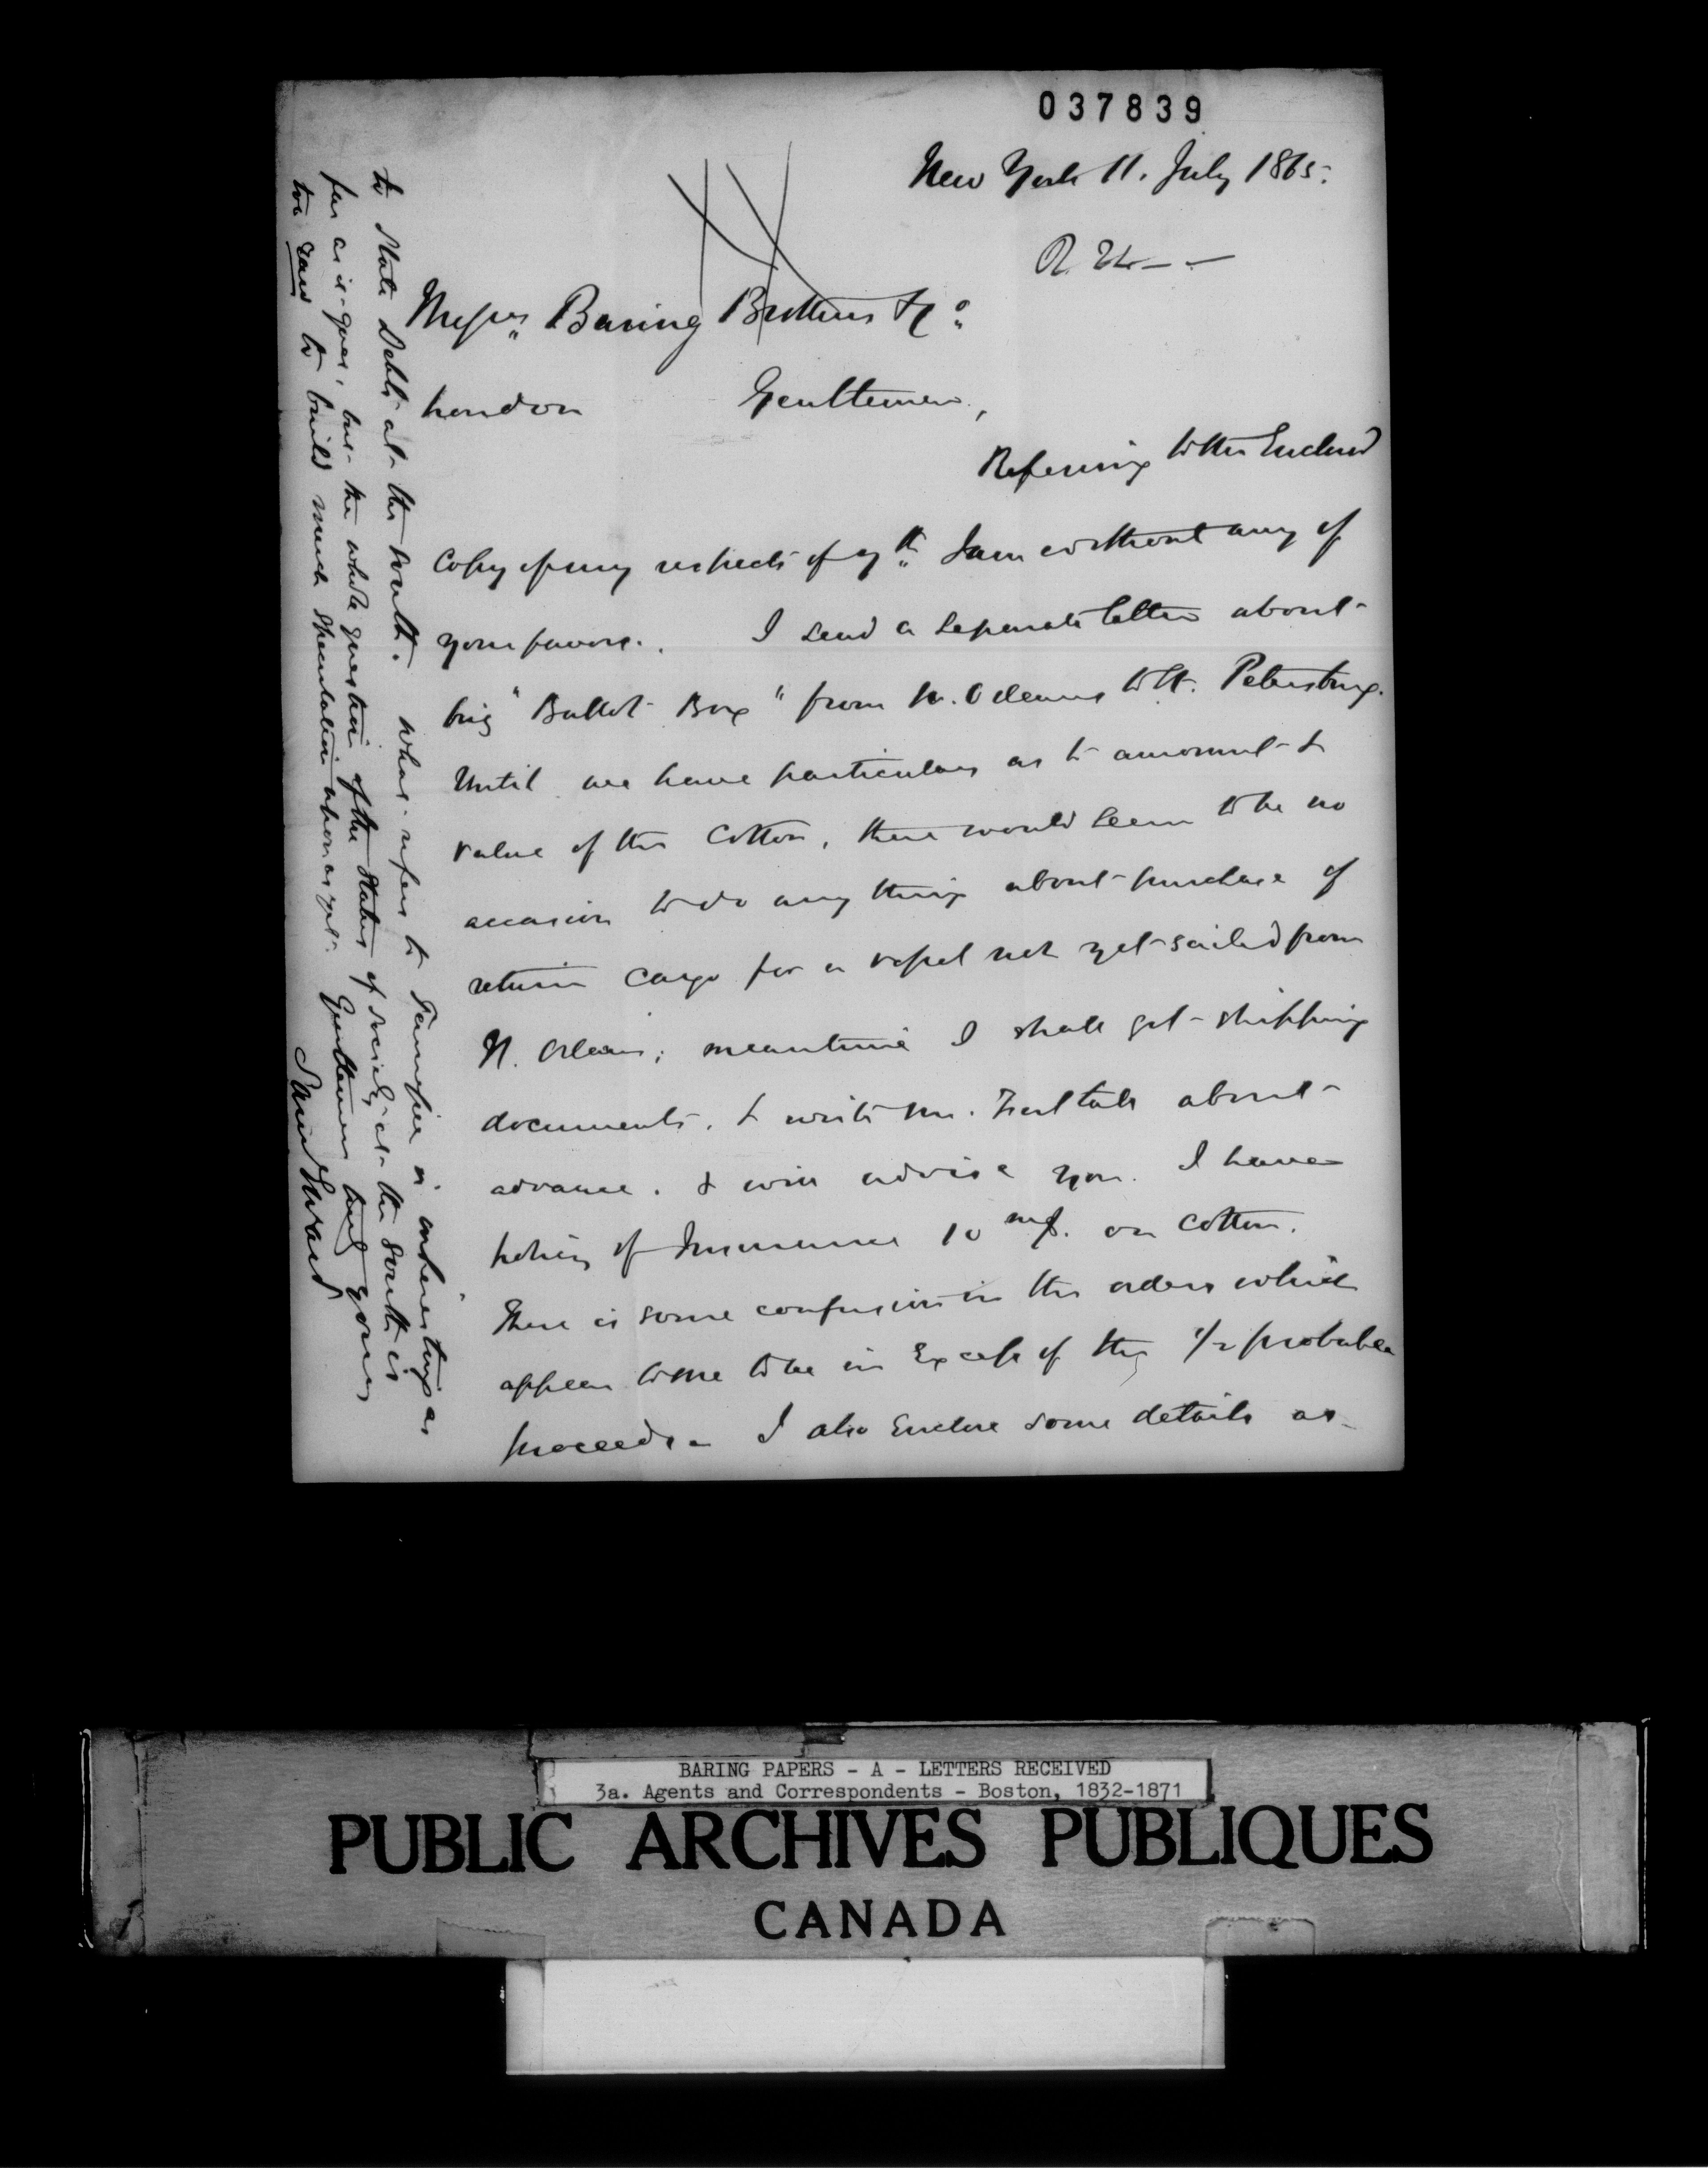 037839
New York 11. July 1865.
Messrs Baring Brothers & Co
London Gentlemen,
Referring to the Enclosed
Copy of my respects of 7th I am without any of
your favors. I send a separate letter about
brig "Ballot Box" from N. Orleans to St. Petersburg.
Until we have particulars as to amount &
value of the Cotton, there would seem to be no
occasion to do any thing about purchase of
return cargo for a vessel not yet sailed from
N. Orleans; meantime I shall get shipping
documents. & write Mr. about
advance. & will advise you. I have
policy of Insurance 10 on Cotton.
There is some confusion in the orders which
appear to me to be in Excess of the 1/2 probable
proceeds. I also Enclose some details as
to State Debts at the South. What refers to is interesting as
far as it goes, but the whole question of the Status of society at the South is
too raw to build much speculation upon as yet. Gentlemen truly yours
BARING PAPERS - A - LETTERS RECEIVED
3a. Agents and Correspondents - Boston, 1832-1871
PUBLIC ARCHIVES PUBLIQUES
CANADA